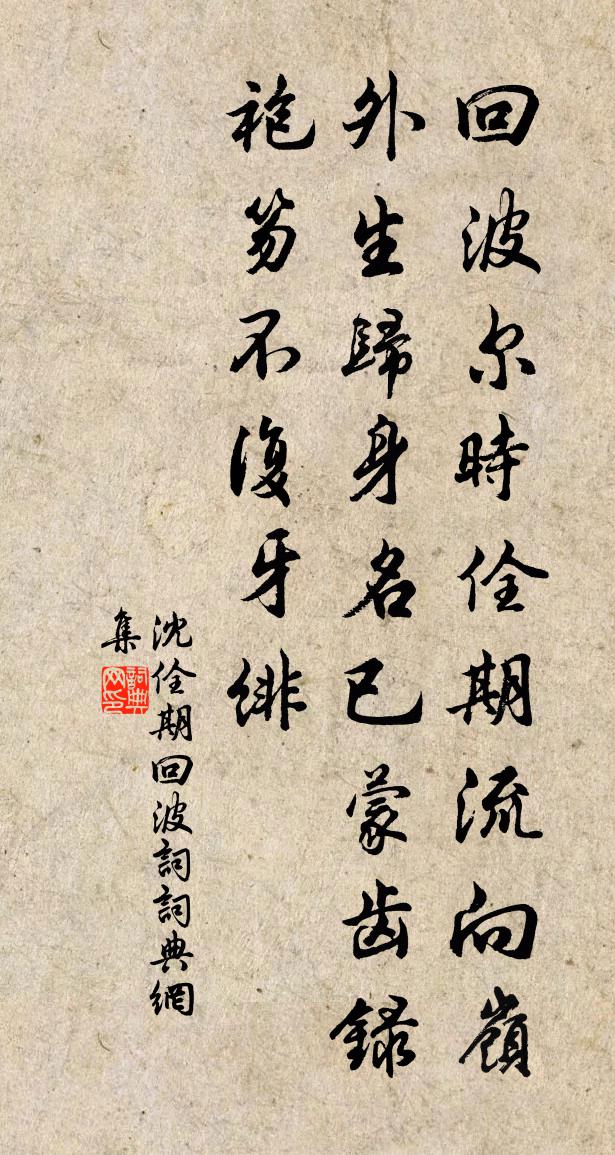 回波尔時佺期流向嶺
外生歸身名已蒙齿録
袍笏不復牙緋
沈佺期回波詞詞典網
集
詞典网印